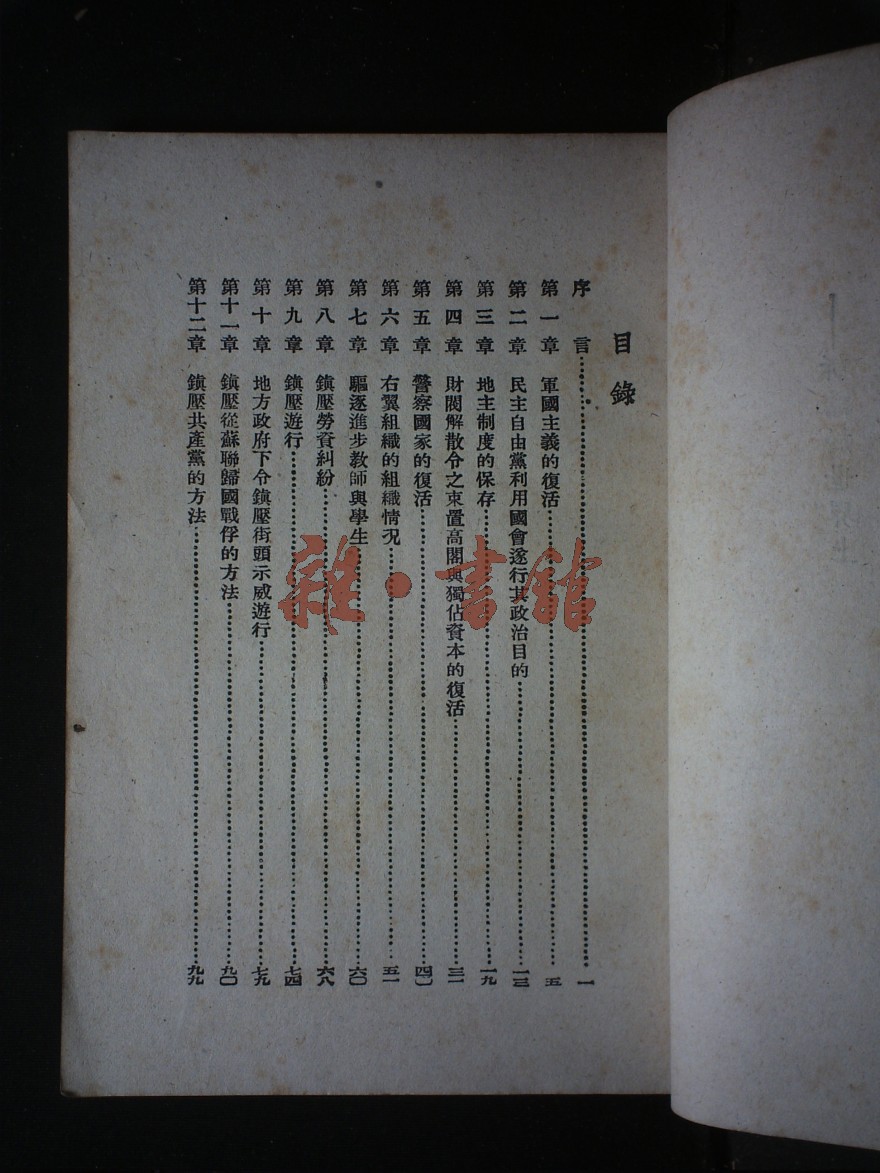 目錄
序言…………一
第一章 軍國主義的復活…………五
第二章 民主自由黨利用國會遂行其政治目的…………一三
第三章 地主制度的保存…………一九
第四章 財閥解散令之束置高閣與獨佔資本的復活…………三一
第五章 警察國家的復活…………四〇
第六章 右翼組織的組織情况…………五一
第七章 驅逐進步教師與學生…………六〇
第八章 鎭壓勞資糾紛…………六八
第九章 鎭壓遊行…………七四
第十章 地方政府下令鎭壓街頭示威遊行…………七九
第十一章 鎭壓從蘇聯歸國戰俘的方法…………九〇
第十二章 鎭壓共產黨的方法…………九九
雜·書館